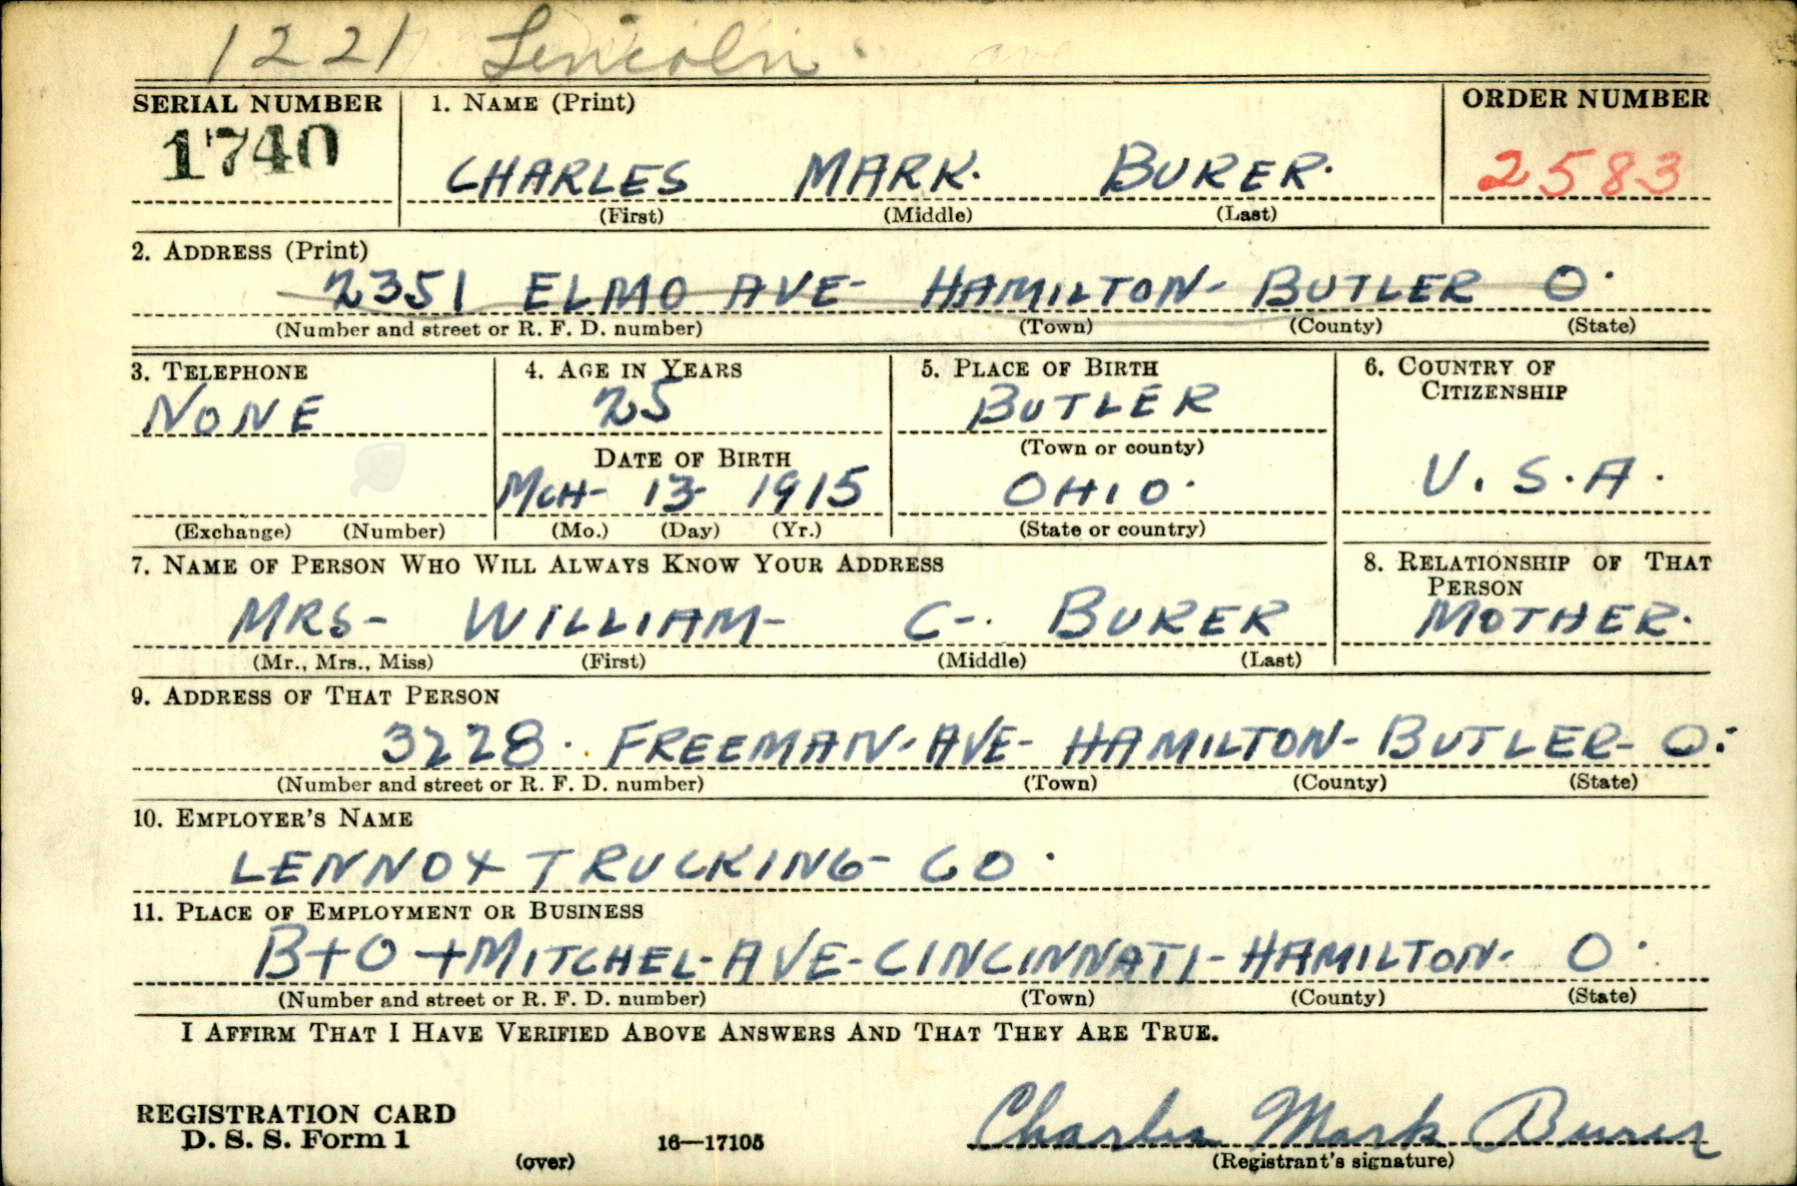 1221 Lincoln
SERIAL NUMBER 1. NAME (Print) ORDER NUMBER
1740 CHARLES MARK. BURER. 2583
(First) (Middle) (Last)
2. ADDRESS (Print)
2351 ELMO AVE- HAMILTON- BUTLER O.
(Number and street or R. F. D. number) (Town) (County) (State)
3. TELEPHONE 4. AGE IN YEARS 5. PLACE OF BIRTH 6. COUNTRY OF
CITIZENSHIP
NONE 25 BUTLER
DATE OF BIRTH (Town or county)
MCH- 13- 1915 OHIO. U.S.A.
(Exchange) (Number) (Mo.) (Day) (Yr.) (State or country)
7. NAME OF PERSON WHO WILL ALWAYS KNOW YOUR ADDRESS 8. RELATIONSHIP OF THAT
PERSON
MRS- WILLIAM- C-. BURER MOTHER.
(Mr., Mrs., Miss) (First) (Middle) (Last)
9. ADDRESS OF THAT PERSON
3228. FREEMAN-AVE- HAMILTON- BUTLER- O.
(Number and street or R. F. D. number) (Town) (County) (State)
10. EMPLOYER'S NAME
LENNOX TRUCKING- CO.
11. PLACE OF EMPLOYMENT OR BUSINESS
B+O +MITCHEL-AVE-CINCINNATI-HAMILTON- O.
(Number and street or R. F. D. number) (Town) (County) (State)
I AFFIRM THAT I HAVE VERIFIED ABOVE ANSWERS AND THAT THEY ARE TRUE.
REGISTRATION CARD
D. S. S. Form 1 16—17105 Charles Mark Burer
(over) (Registrant's signature)